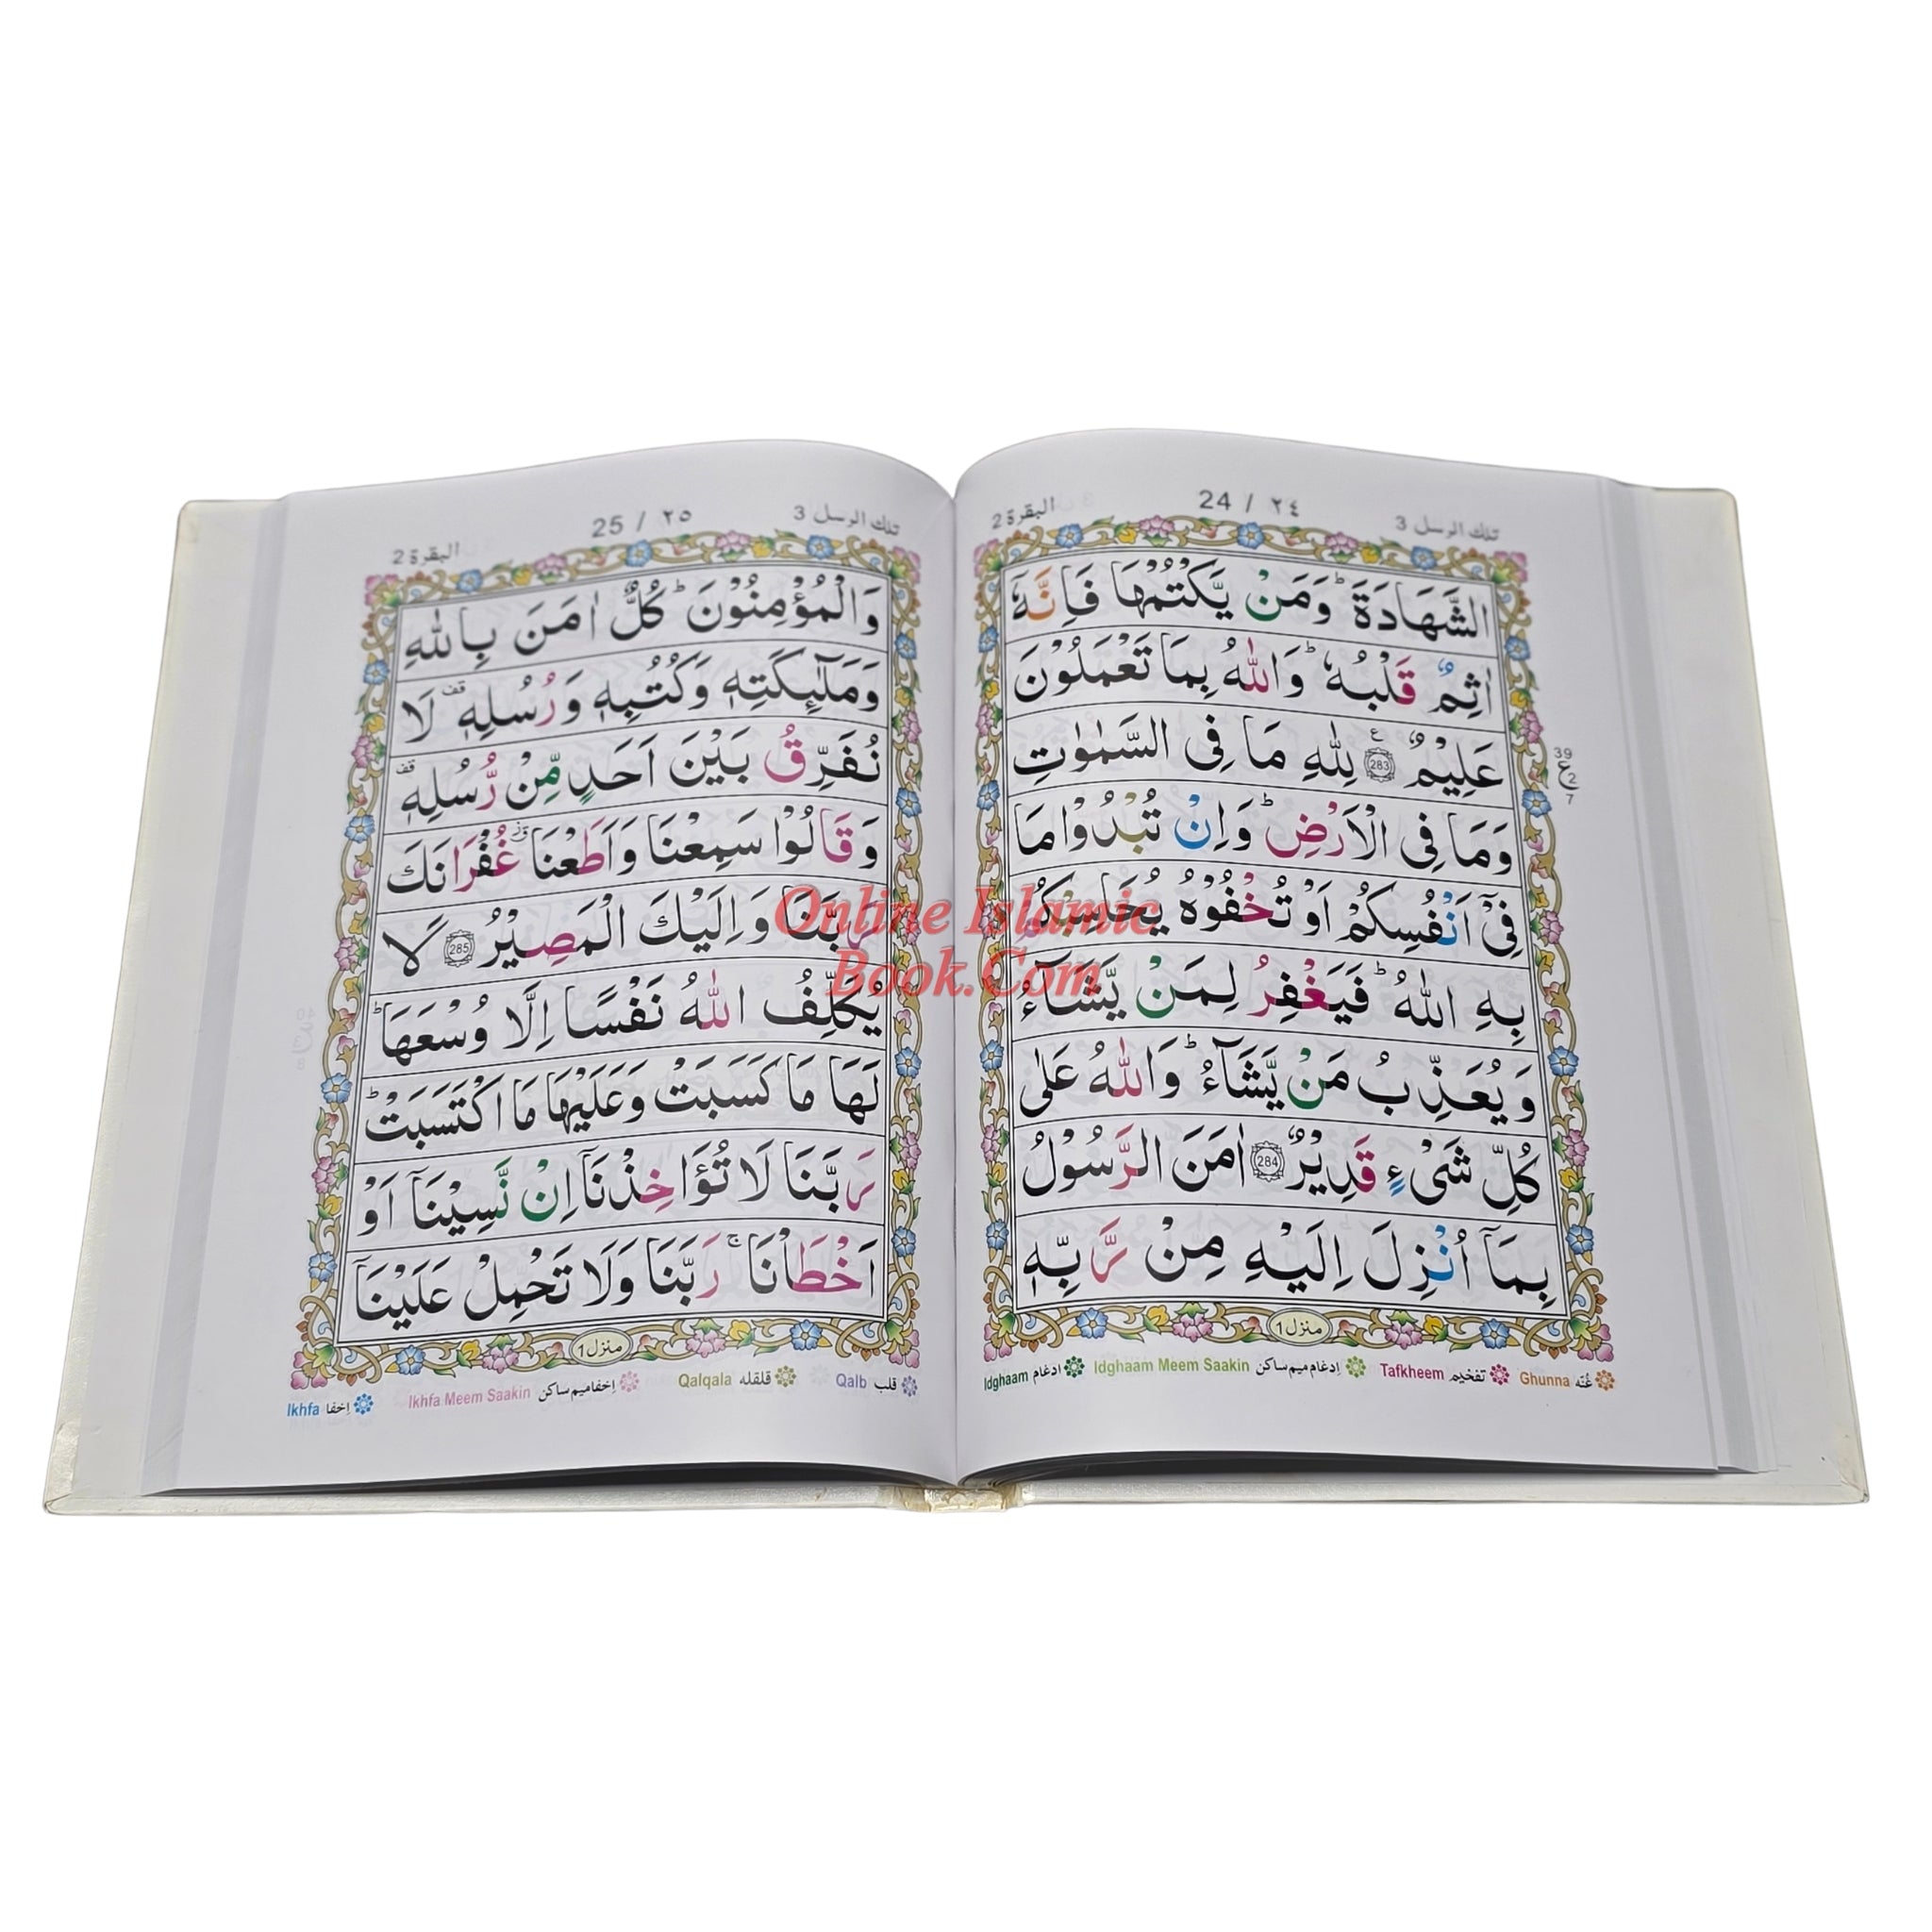 تلك الرسل 3
24 / ٢٤
البقرة 2
الشَّهَادَةَ ؕ وَمَنْ يَّكْتُمْهَا فَاِنَّهٗۤ
اٰثِمٌ قَلْبُهٗ ؕ وَاللّٰهُ بِمَا تَعْمَلُوْنَ
عَلِيْمٌ 283 لِلّٰهِ مَا فِى السَّمٰوٰتِ
وَمَا فِى الْاَرْضِ ؕ وَاِنْ تُبْدُوْا مَا
فِىْۤ اَنْفُسِكُمْ اَوْ تُخْفُوْهُ يُحَاسِبْكُمْ
بِهِ اللّٰهُ ؕ فَيَغْفِرُ لِمَنْ يَّشَآءُ
وَيُعَذِّبُ مَنْ يَّشَآءُ ؕ وَاللّٰهُ عَلٰى
كُلِّ شَىْءٍ قَدِيْرٌ 284 اٰمَنَ الرَّسُوْلُ
بِمَاۤ اُنْزِلَ اِلَيْهِ مِنْ رَّبِّهٖ
39
ع 2
7
منزل 1
غُنّه Ghunna تفخيم Tafkheem اِدغام ميم ساكن Idghaam Meem Saakin ادغام Idghaam
تلك الرسل 3
25 / ٢٥
البقرة 2
وَالْمُؤْمِنُوْنَ ؕ كُلٌّ اٰمَنَ بِاللّٰهِ
وَمَلٰٓئِكَتِهٖ وَكُتُبِهٖ وَرُسُلِهٖ قف لَا
نُفَرِّقُ بَيْنَ اَحَدٍ مِّنْ رُّسُلِهٖ قف
وَقَالُوْا سَمِعْنَا وَاَطَعْنَا غُفْرَانَكَ
رَبَّنَا وَاِلَيْكَ الْمَصِيْرُ 285 لَا
يُكَلِّفُ اللّٰهُ نَفْسًا اِلَّا وُسْعَهَا ؕ
لَهَا مَا كَسَبَتْ وَعَلَيْهَا مَا اكْتَسَبَتْ ؕ
رَبَّنَا لَا تُؤَاخِذْنَاۤ اِنْ نَّسِيْنَاۤ اَوْ
اَخْطَاْنَا ۚ رَبَّنَا وَلَا تَحْمِلْ عَلَيْنَاۤ
منزل 1
قلب Qalb قلقله Qalqala اِخفا ميم ساكن Ikhfa Meem Saakin اِخفا Ikhfa
Online Islamic
Book.Com